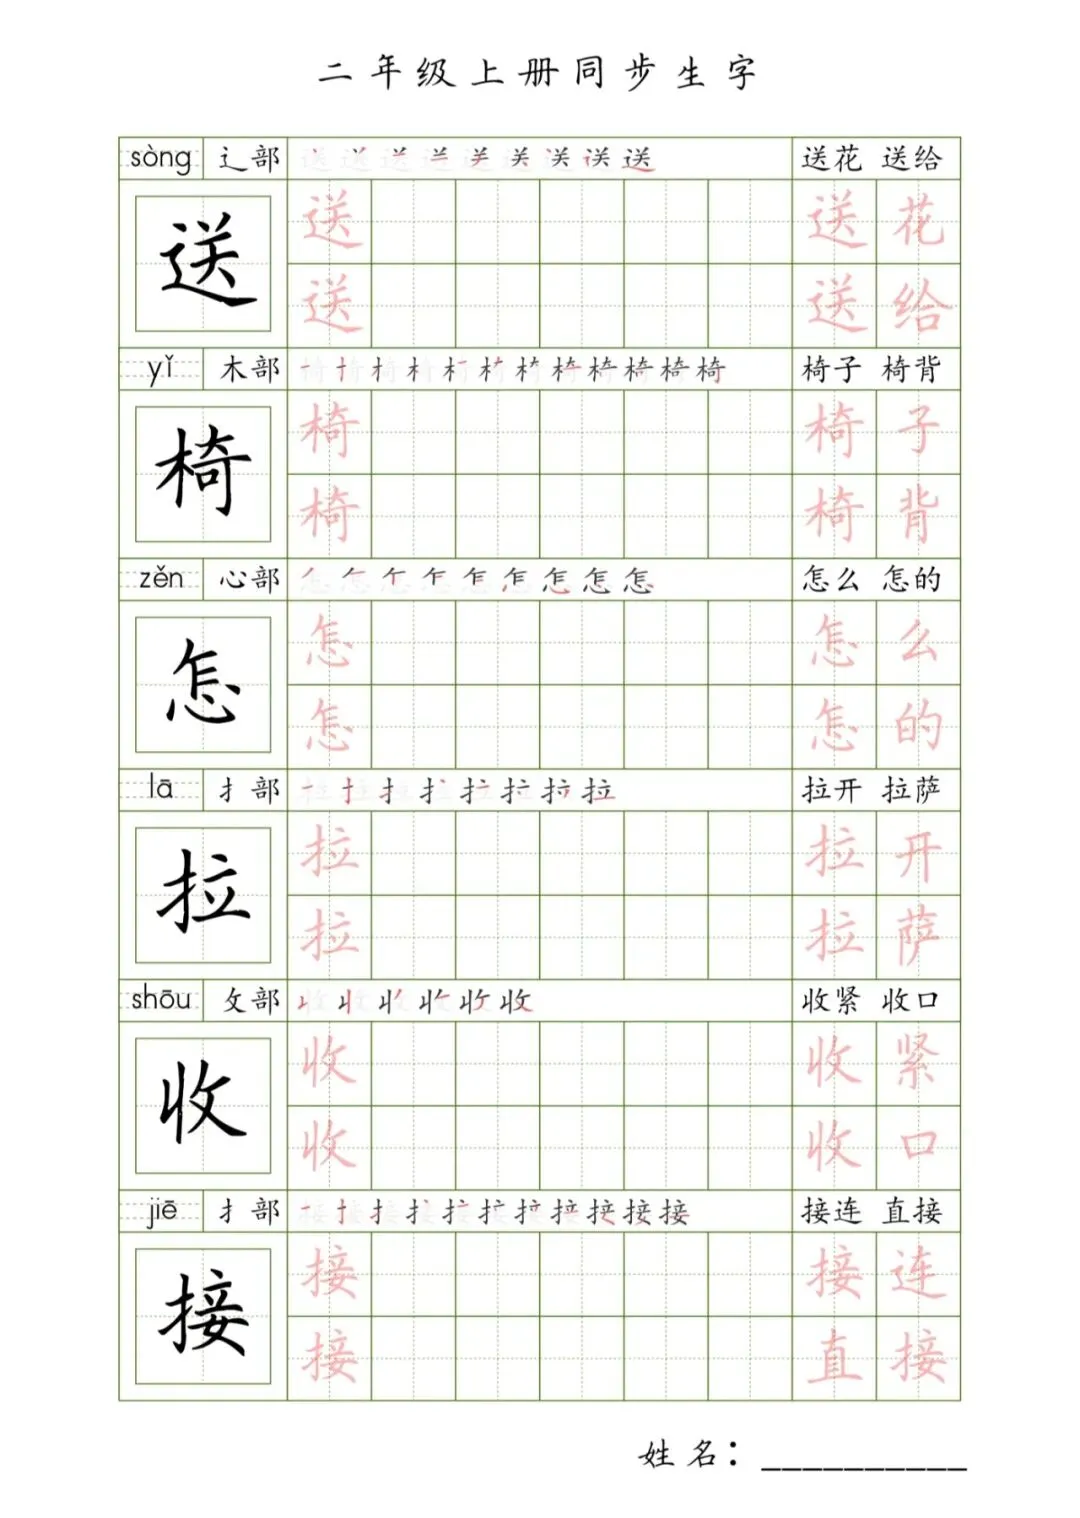 二年级上册同步生字
sòng 辶部 送 送 送 送 送 送 送 送 送 送花 送给
送 送 送 花
送 送 给
yǐ 木部 椅 椅 椅 椅 椅 椅 椅 椅 椅 椅 椅 椅 椅子 椅背
椅 椅 椅 子
椅 椅 背
zěn 心部 怎 怎 怎 怎 怎 怎 怎 怎 怎 怎么 怎的
怎 怎 怎 么
怎 怎 的
lā 扌部 拉 拉 拉 拉 拉 拉 拉 拉 拉开 拉萨
拉 拉 拉 开
拉 拉 萨
shōu 攵部 收 收 收 收 收 收 收紧 收口
收 收 收 紧
收 收 口
jiē 扌部 接 接 接 接 接 接 接 接 接 接 接 接连 直接
接 接 接 连
接 直 接
姓名：__________